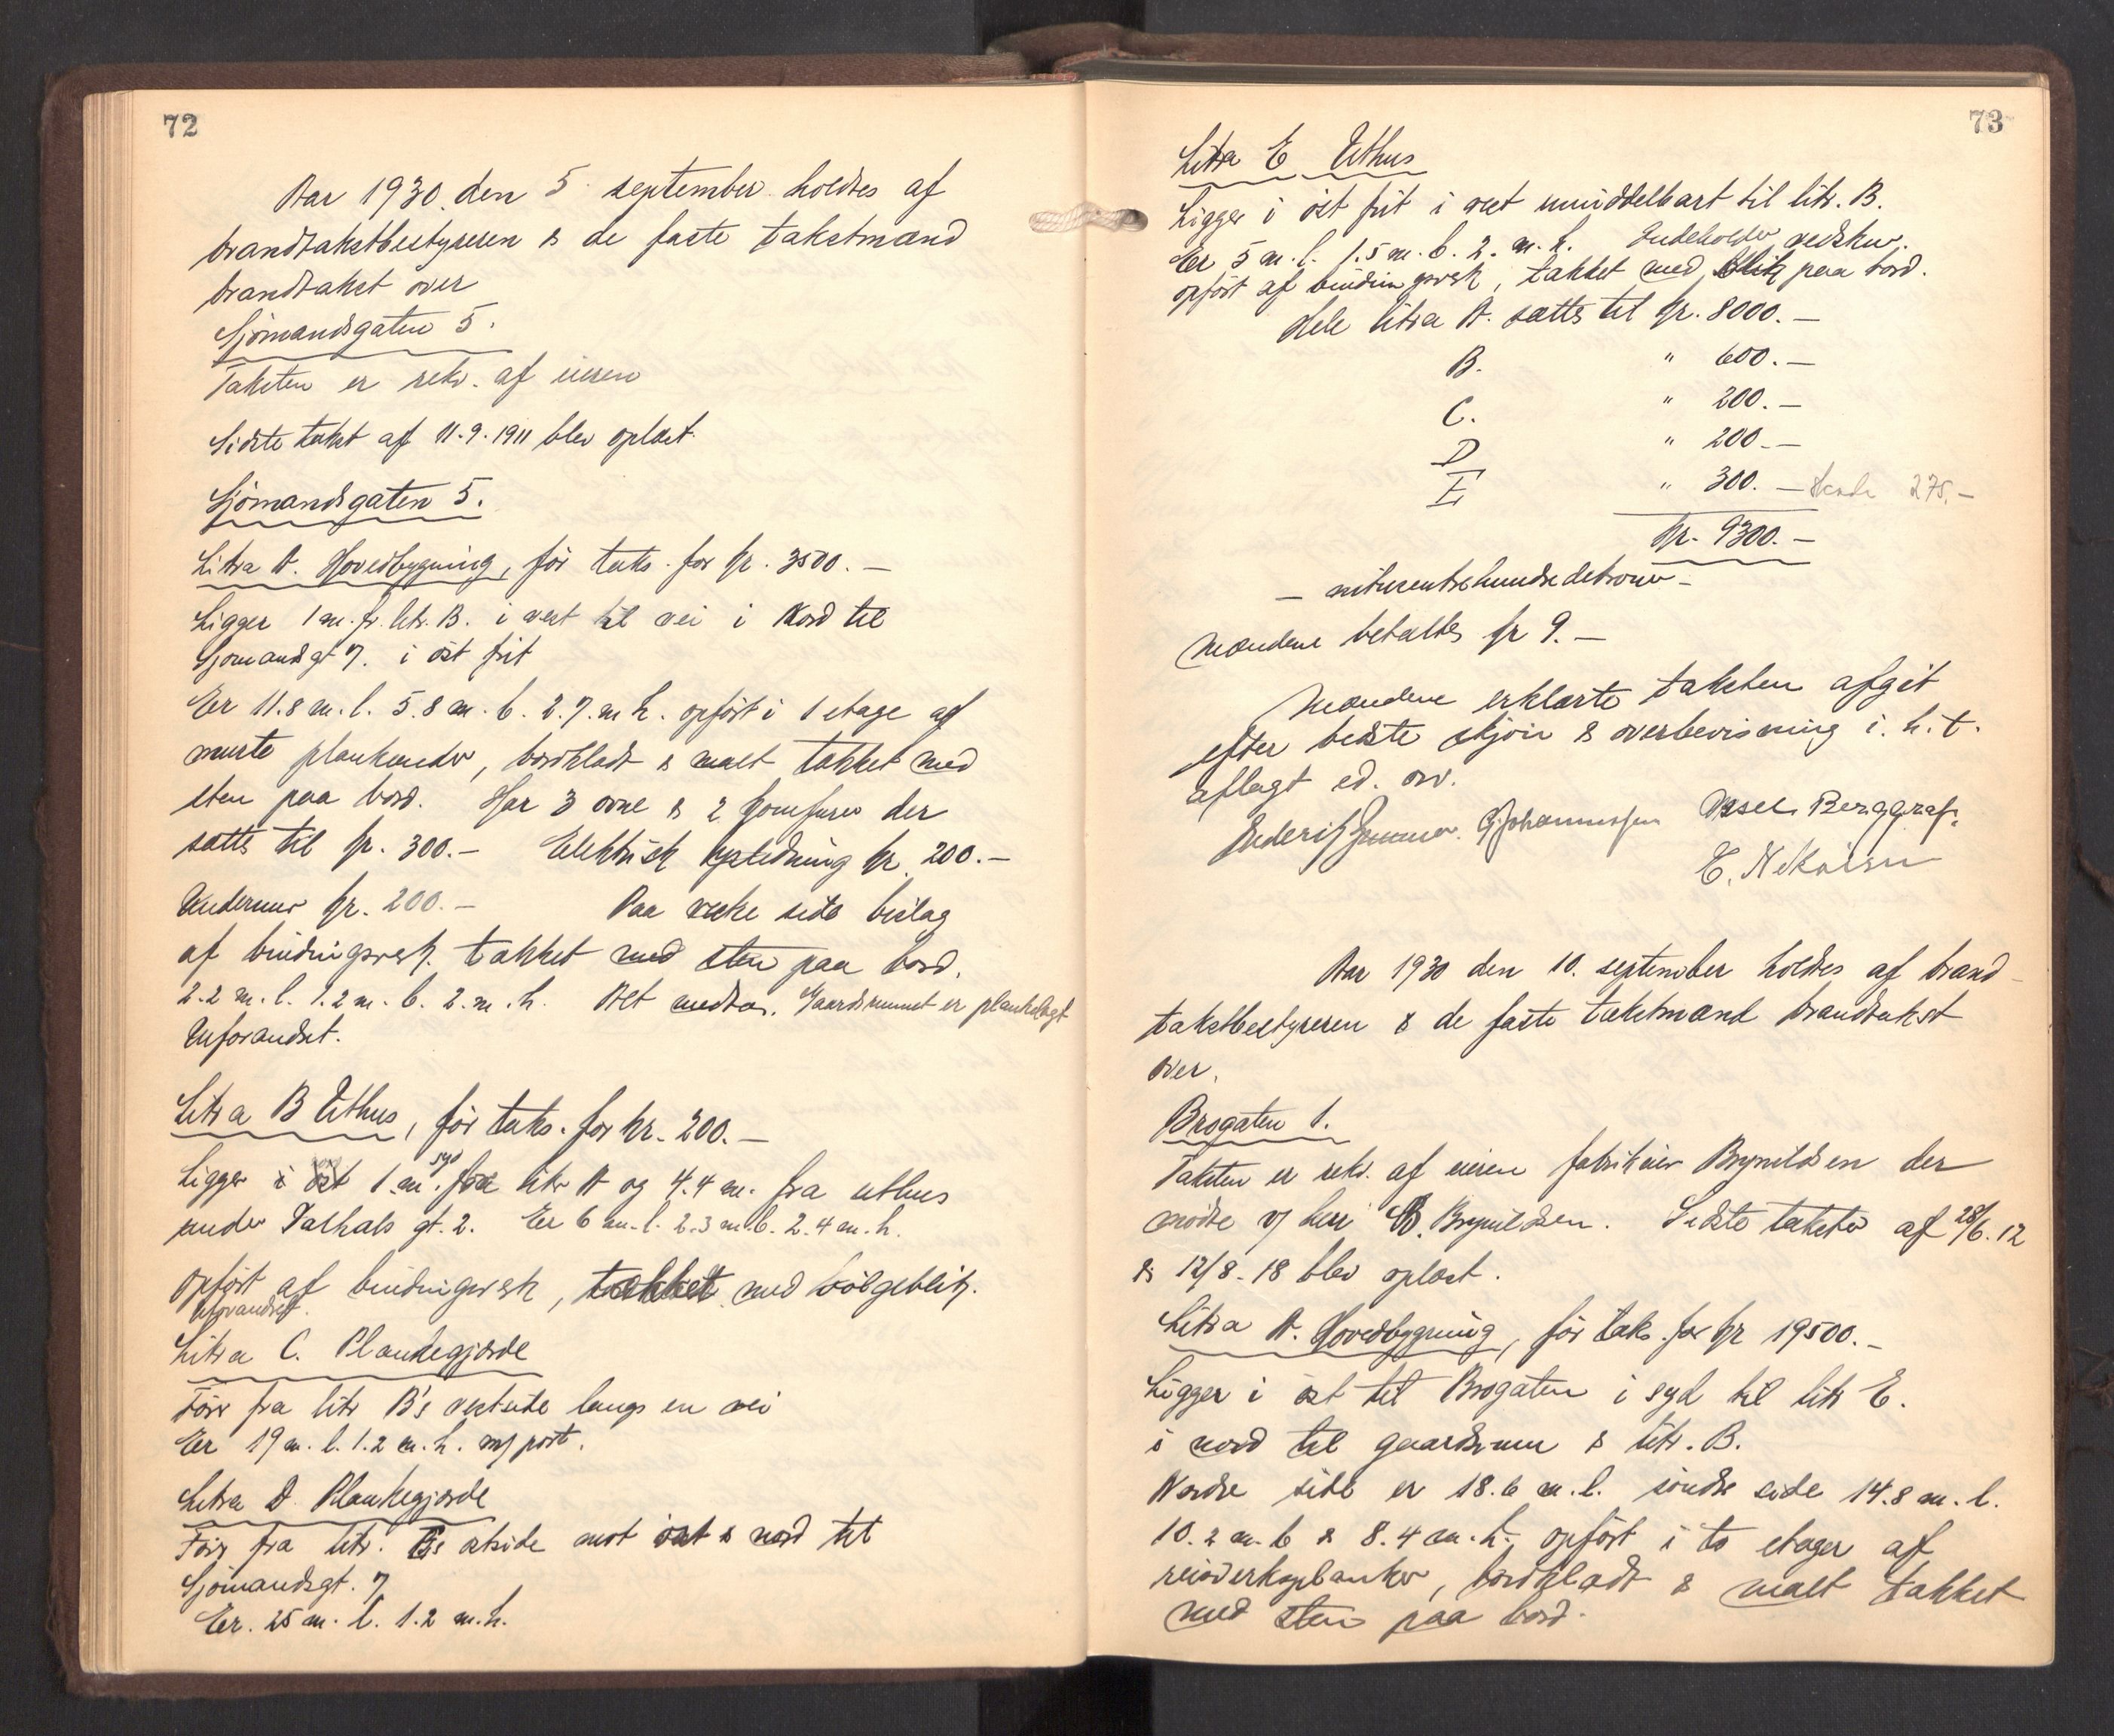 72
Aar 1930 den 5 september holdtes af
brandtakstbestyreren & de faste takstmænd
brandtakst over
Sjömandsgaten 5.
Taksten er rekv. af eieren
Sidste takst af 11.9.1911 blev oplæst.
Sjömandsgaten 5.
Litra A. Hovedbygning, för taks. for kr. 3500.—
Ligger 1 m. fr. litr. B. i vest til vei i Nord til
Sjömandsgt 7. i öst frit
Er 11.8 m. l. 5.8 m. b. 2.7. m h. opfört i 1 etage af
murte plankender, bordklædt & malt tækket med
sten paa bord. Har 3 ovne & 2 komfurer der
sættes til kr. 300.— Elektrisk opledning kr. 200.—
Undermur kr. 200.— Paa vestre side bislag
af bindingsverk tækket med sten paa bord.
2.2 m. l. 1.2 m. b. 2. m. h. Gaardsrummet er plankelagt
Uforandret.
Litra B Uthus, för taks. for kr. 200.—
Ligger i öst 1 m. syd fra litr A og 4.4 m. fra uthus
under gt. 2. Er 6 m. l. 2.3 m b. 2.4 m. h.
Opfört af bindingsverk, tækket med bölgeblik.
Uforandret.
Litra C. Plankegjærde
Förer fra litr B's vestside langs en vei
Er 19 m. l. 1.2 m. h. m/ port.
Litra D. Plankegjærde
Förer fra litr. østside mot öst & nord til
Sjömandsgt. 7
Er. 25 m. l. 1.2 m. h.
73
Litra E Uthus
Ligger i öst frit i vest umiddelbart til litr. B.
Er 5 m. l. 1.5 m. b. 2. m. h. Indeholder vedskur.
opfört af bindingsverk, tækket med blik paa bord.
Hele litra A. sættes til kr. 8000.—
B. " 600.—
C. " 200.—
D " 200.—
E " 300.— 275.—
kr. 9300.—
— nitusentrehundredekroner —
Mændene betaltes kr 9.—
Mændene erklærte taksten afgit
efter bedste skjön & overbevisning i. h. t.
aflagt ed. osv.
G Johannessen Aksel Berggraf.
Aar 1930 den 10. september holdtes af brand-
takstbestyreren & de faste takstmænd brandtakst
over.
Brogaten 1.
Taksten er rekv. af eieren fabrikeier Brynildsen der
mödte v/ herr B. Brynildsen. Sidste takster af 28/6. 12
& 12/8-18 blev oplæst.
Litra A. Hovedbygning, för taks. for kr 19500.—
Ligger i öst til Brogaten i syd til litr E.
i nord til gaardsrum & litr. B.
Nordre side er 18.6 m. l. söndre side 14.8 m. l.
10.2 m. b & 8.4 m. h. opfört i to etager af
reisverksplanker, bordklædt & malt tækket
med sten paa bord.